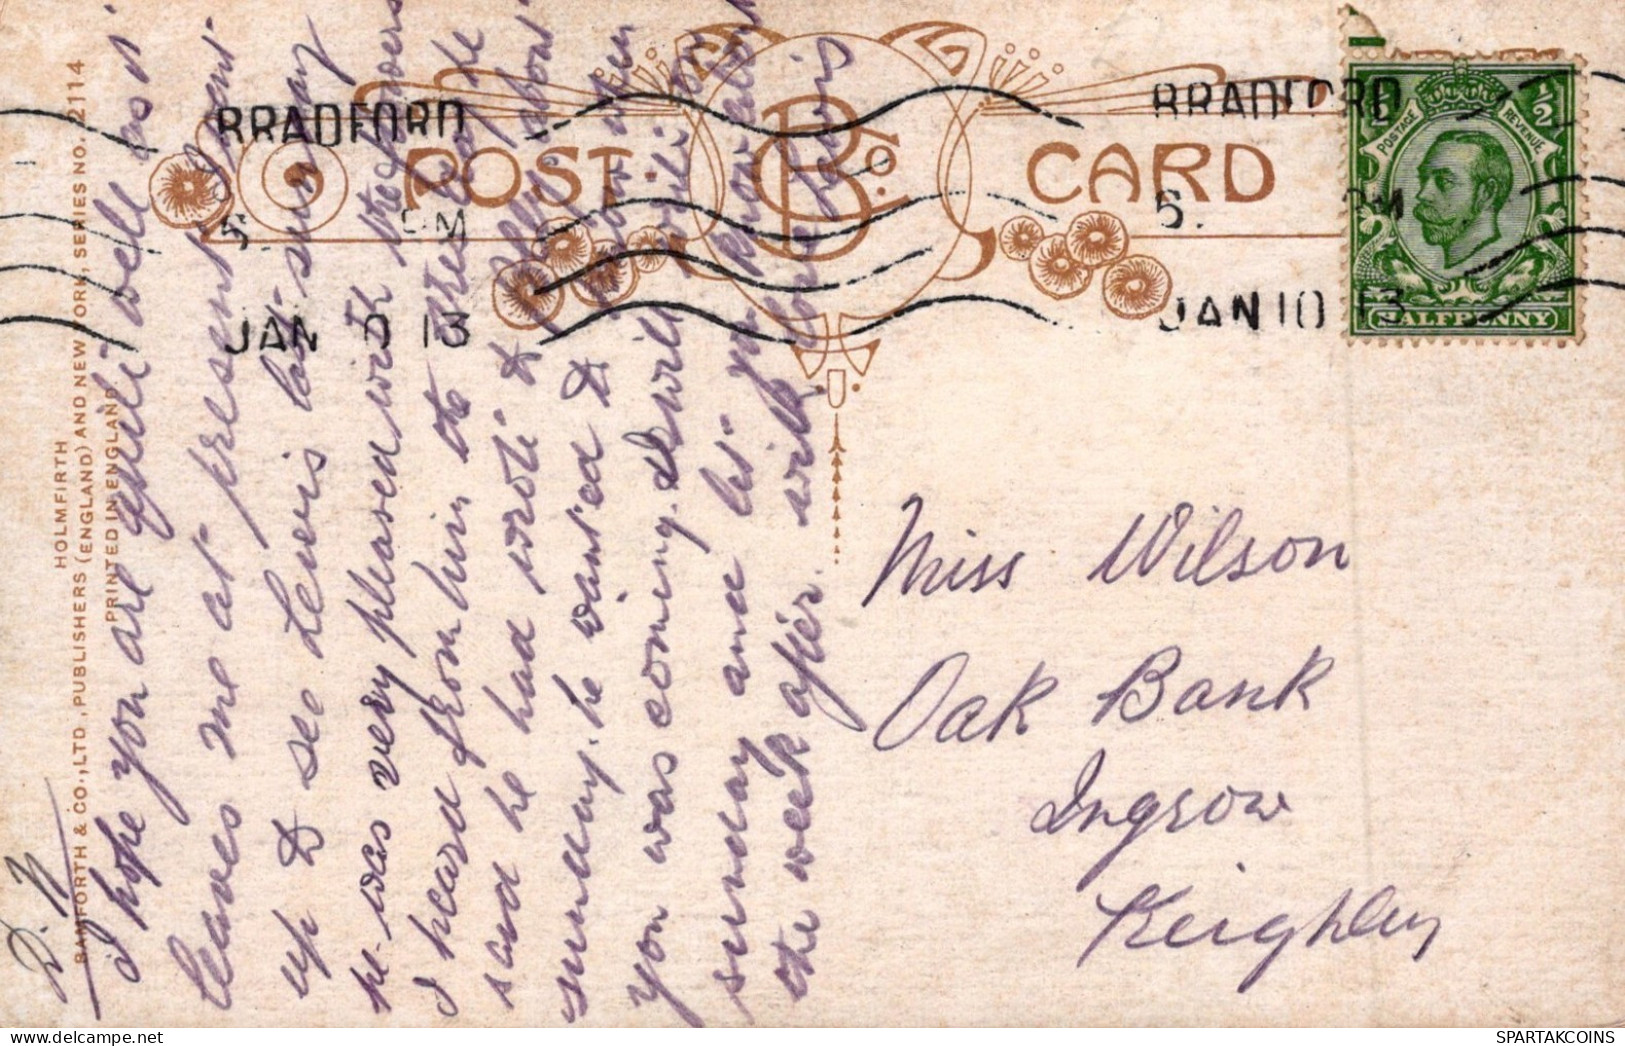 BRADFORD
5. PM
JAN 10 13
BRADFORD
5. PM
JAN 10 13
POST CARD
B Co.
POSTAGE REVENUE
½ ½
HALFPENNY
HOLMFIRTH
BAMFORTH & CO., LTD, PUBLISHERS (ENGLAND) AND NEW YORK, SERIES NO. 2114
PRINTED IN ENGLAND
D. N
I hope you are quite well as it
leaves me at present I went
up to see Lewis last sunday
he was very pleased with the flowers
I heard from him to
said he had wrote to about
sunday. he wanted to know when
you was coming. I will write on
sunday and let you know about
the week after. with love Lewis
Miss Wilson
Oak Bank
Ingrow
Keighley
SPARTAKCOINS